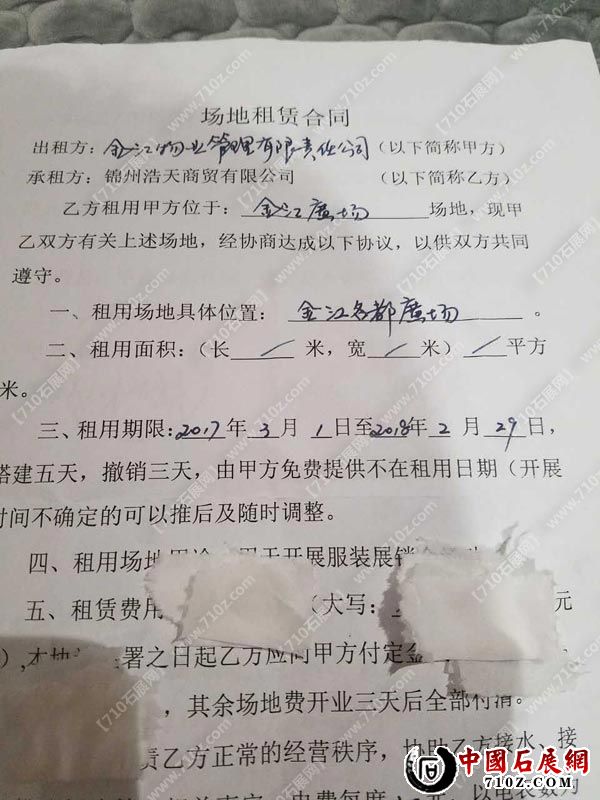 场地租赁合同
出租方：金江物业管理有限责任公司（以下简称甲方）
承租方：锦州浩天商贸有限公司 （以下简称乙方）
乙方租用甲方位于：金江廣场 场地，现甲
乙双方有关上述场地，经协商达成以下协议，以供双方共同
遵守。
一、租用场地具体位置：金江名都廣场。
二、租用面积：（长 / 米，宽 / 米） / 平方
米。
三、租用期限：2017年3月1日至2018年2月29日，
搭建五天，撤销三天，由甲方免费提供不在租用日期（开展
时间不确定的可以推后及随时调整。
四、租用场地 开展服装展销
五、租赁费用 （大写： 元
署之日起乙方应向甲方付定金
，其余场地费开业三天后全部付清。
责乙方正常的经营秩序，协助乙方接水、接
电费每度
【710石展网】
www.710z.com
中國石展網
710z.com